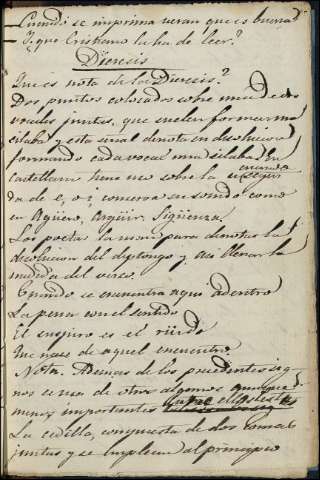 Cuando se imprima veran que es buena
Y que Cristiano la ha de leer?
Dieresis
Que es nota de la Dieresis?
Dos puntos colocados sobre una de dos
vocales juntas, que suelen formar una
silaba y esta señal denota su disolucion
formando cada vocal una silaba. En
castellano tiene uso sobre la u cuando
seguida de e, o i, conserva su sonido como
en Agüero, Argüir, Sigüenza.
Los poetas la usan para denotar la
disolucion del diptongo y asi llenar la
medida del verso.
Cuando se encuentra aqui adentro
La pena con el sentido
El suspiro es el rüido
Que nace de aquel encuentro.
Nota. Ademas de los precedentes sig
nos se usa de otros algunos aunque
menos importantes
La cedilla, compuesta de dos comas
juntas y se emplean al principio